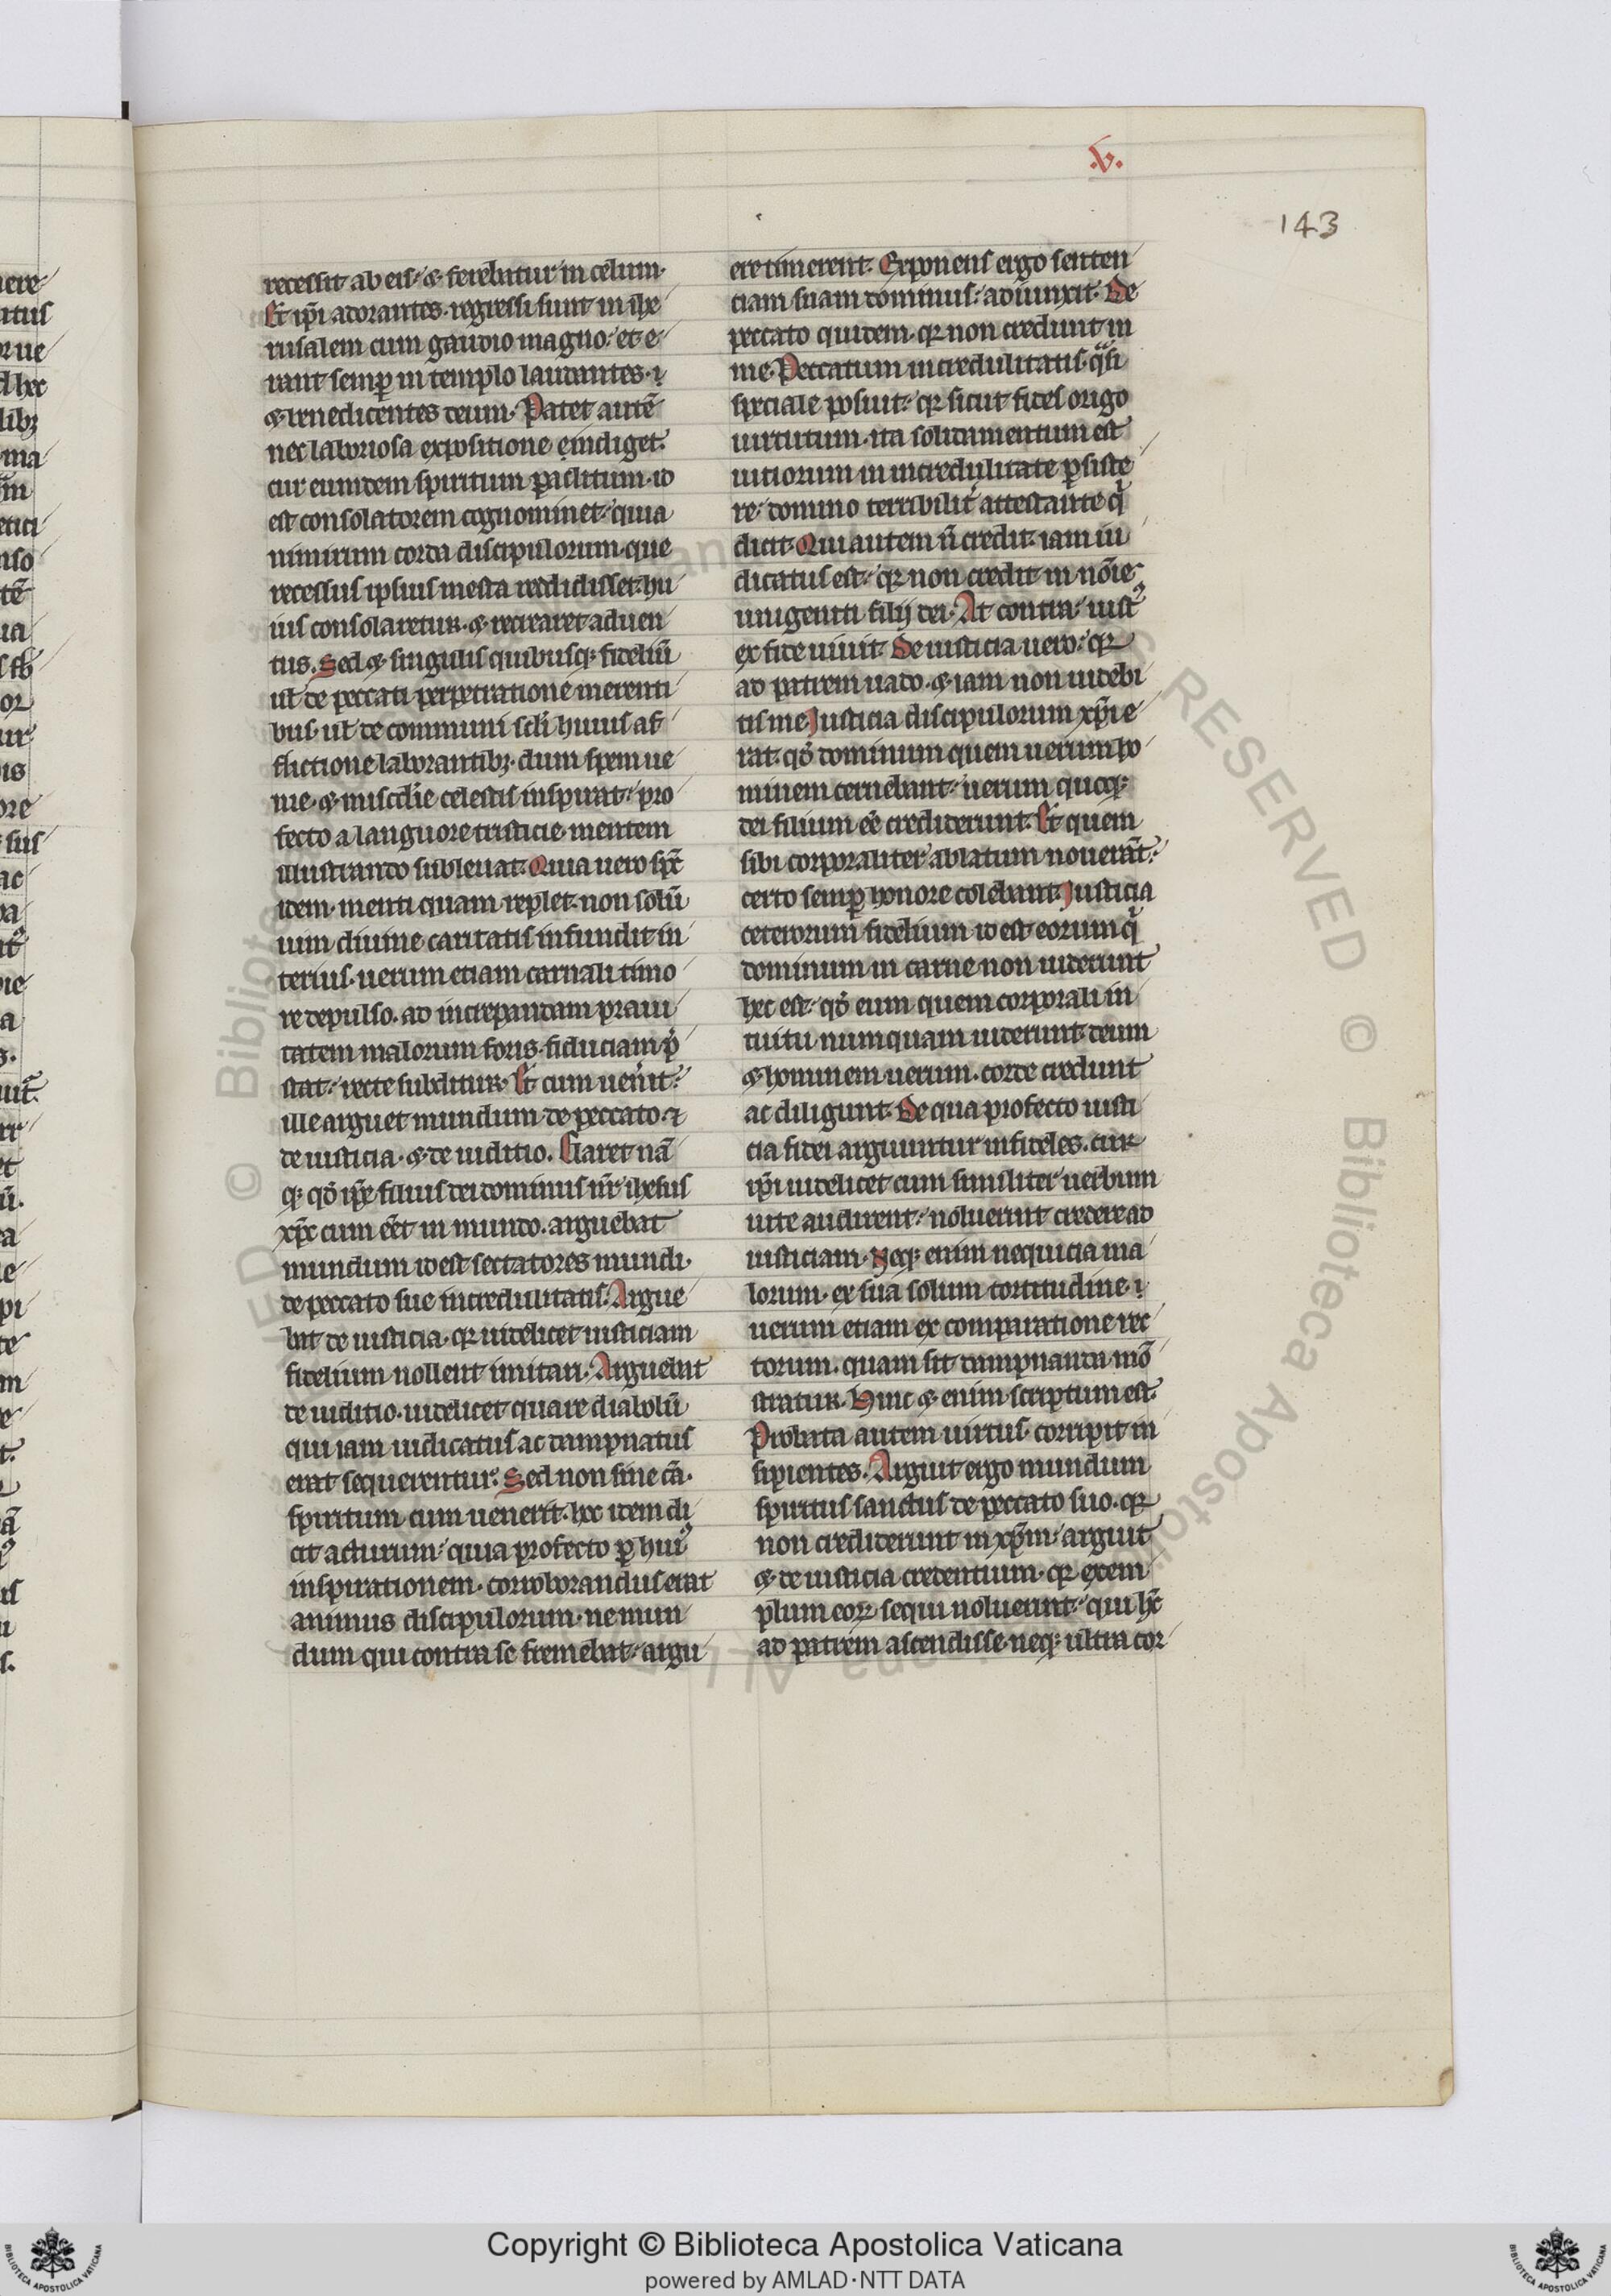 .v.
143
recessit ab eis. ⁊ ferebatur in celum.
Et ip̄i adorantes. regressi sunt in ihe
rusalem cum gaudio magno. et e
rant semꝑ in templo laudantes. ⁊
⁊ benedicentes deum. Patet autē
nec laboriosa expositione eindiget.
cur eumdem spiritum ꝑaclitum. id
est consolatorem cognominet. quia
nimirum corda discipulorum. que
recessus ipsius mesta reddidisset. hu
ius consolaretur. ⁊ recrearet aduen
tus. Sed ⁊ singulis quibusqꝫ fideliū
ul̄ de peccati perpetratione merenti
bus. ul̄ de communi scl̄i huius af
flictione laborantibꝫ. dum spem ue
nie. ⁊ miscd̄ie celestis inspirat. pro
fecto a languore tristicie mentem
illustrando subleuat. Quia uero sp̄c
idem. menti quam replet. non solū
uim diuine caritatis infundit in
terius. uerum etiam carnali timo
re depulso. ad increpandam praui
tatem malorum foris. fiduciam p̄
stat. recte subditur. Et cum uen̄it.
ille arguet mundum de peccato. ⁊
de iusticia. ⁊ de iuditio. Claret nā
qꝫ qd̄ ip̄e filius dei dominus nr̄ ihesus
xp̄c cum eēt in mundo. arguebat
mundum id est sectatores mundi.
de peccato sue incredulitatis. Argue
bat de iusticia. qꝛ uidelicet iusticiam
fidelium nollent imitari. Arguebat
de iuditio. uidelicet quare diabolū
qui iam iudicatus ac dampnatus
erat sequerentur. Sed non sine cā.
spiritum cum uenerit. hec idem di
cit acturum. quia profecto ꝑ huiꝰ
inspirationem. corroborandus erat
animus discipulorum. ne mun
dum qui contra se fremebat. argu
ere timerent. Exponens ergo senten
ciam suam dominus. adiunxit. De
peccato quidem. qꝛ non credunt in
me. Peccatum incredulitatis. qᵃsi
speciale posuit. qꝛ sicut fides origo
uirtutum. ita solidamentum est
uitiorum in incredulitate ꝑsiste
re. domino terribilit̄ attestante qͥ
dicit. Qui autem n̄ credit. iam iu
dicatus est. qꝛ non credit in nōie
unigeniti filij dei. At contra. iustꝰ
ex fide uiuit. De iusticia uero. qꝛ
ad patrem uado. ⁊ iam non uidebi
tis me. Iusticia discipulorum xp̄i e
rat. qd̄ dominum quem uerum ho
minem cernebant. uerum quoqꝫ
dei filium eē crediderunt. Et quem
sibi corporaliter ablatum nouerāt.
certo semꝑ honore colebant. Iusticia
ceterorum fidelium id est eorum qͥ
dominum in carne non uiderunt
hec est. qd̄ eum quem corporali in
tuitu numquam uiderunt. deum
⁊ hominem uerum. corde credunt
ac diligunt. De qua profecto iusti
cia fidei arguuntur infideles. cur
ip̄i uidelicet cum similiter uerbum
uite audirent. noluerint credere ad
iusticiam. Neqꝫ enim nequicia ma
lorum. ex sua solum tortitudine. ⁊
uerum etiam ex comparatione rec
torum. quam sit dampnanda mō
stratur. Hinc ⁊ enim scriptum est.
Probata autem uirtus. corripit in
sipientes. Arguit ergo mundum
spiritus sanctus de peccato suo. qꝛ
non crediderunt in xp̄m. arguit
⁊ de iusticia credentium. qꝛ exem
plum eoꝝ sequi noluerint. qui hc̄
ad patrem ascendisse. neqꝫ ultra cor